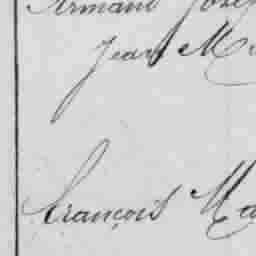 Armand Josep
Jean M
François Ma